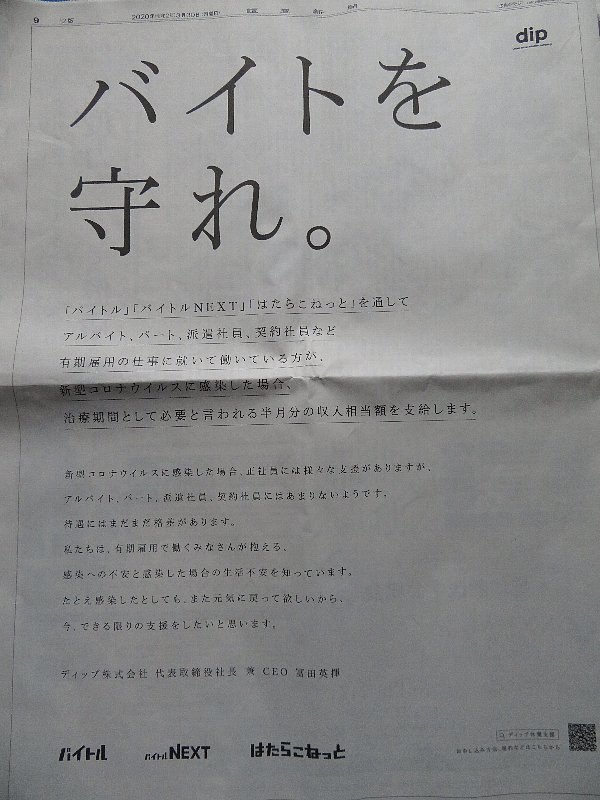 9
2020年(令和2年)3月30日(月曜日)
讀賣新聞
dip
バイトを
守れ。
「バイトル」「バイトルNEXT」「はたらこねっと」を通して
アルバイト、パート、派遣社員、契約社員など
有期雇用の仕事に就いて働いている方が、
新型コロナウイルスに感染した場合、
治療期間として必要と言われる半月分の収入相当額を支給します。
新型コロナウイルスに感染した場合、正社員には様々な支援がありますが、
アルバイト、パート、派遣社員、契約社員にはあまりないようです。
待遇にはまだまだ格差があります。
私たちは、有期雇用で働くみなさんが抱える、
感染への不安と感染した場合の生活不安を知っています。
たとえ感染したとしても、また元気に戻って欲しいから、
今、できる限りの支援をしたいと思います。
ディップ株式会社 代表取締役社長 兼 CEO 冨田英揮
バイトル バイトルNEXT はたらこねっと
ディップ休業支援